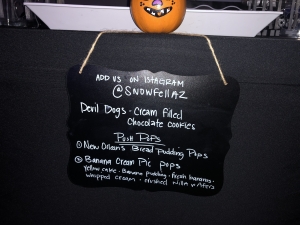 ADD US ON ISTAGRAM
@SNOWFELLAZ
Devil Dogs - Cream Filled
Chocolate cookies
Push Pops
① New Orleans Bread Pudding Pops
② Banana Cream Pie pops
Yellow cake - Banana pudding - fresh banana -
whipped cream - crushed nilla wafers